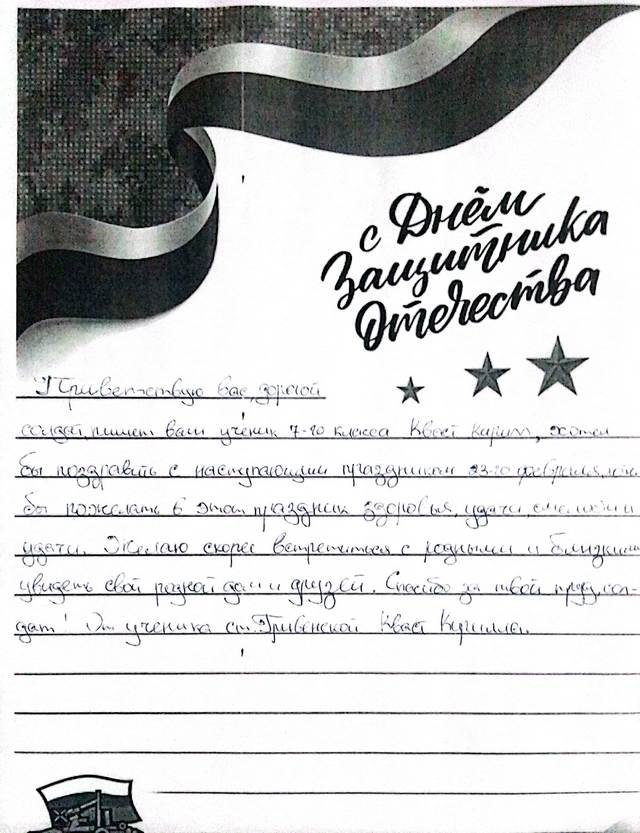 с Днём
Защитника
Отечества
Приветствую вас, дорогой
солдат, пишет вам ученик 7-го класса Квест Кирилл, хотел
бы поздравить с наступающим праздником 23-го февраля,
бы пожелать в этот праздник здоровья, удачи, смелости и
удачи. Желаю скорее встретиться с родными и близкими
увидеть свой родной дом и друзей. Спасибо за твой труд, сол-
дат! От ученика ст. Гривенской Квест Кирилла.